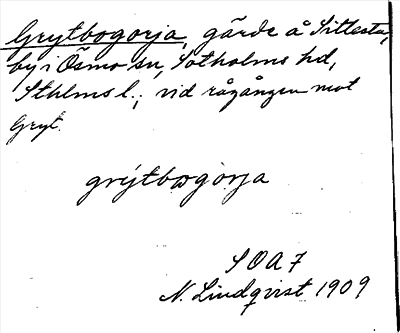 Grytbogorja, gärde å Sittesta,
by i Ösmo sn, Sotholms hd,
Sthlms l.; vid rågången mot
Gryt.
grýtbogorja
SOA 7
N. Lindqvist 1909